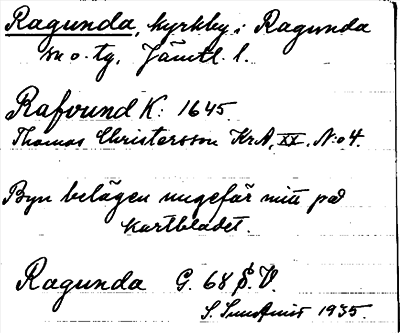 Ragunda, kyrkby i Ragunda
sn o. tg. Jämtl. l.
Rafvund K: 1645.
Thomas Christersson KrA, XX, N:o 4.
Byn belägen ungefär mitt på
kartbladet.
Ragunda G. 68 S. V.
S. Sundqvist 1935.